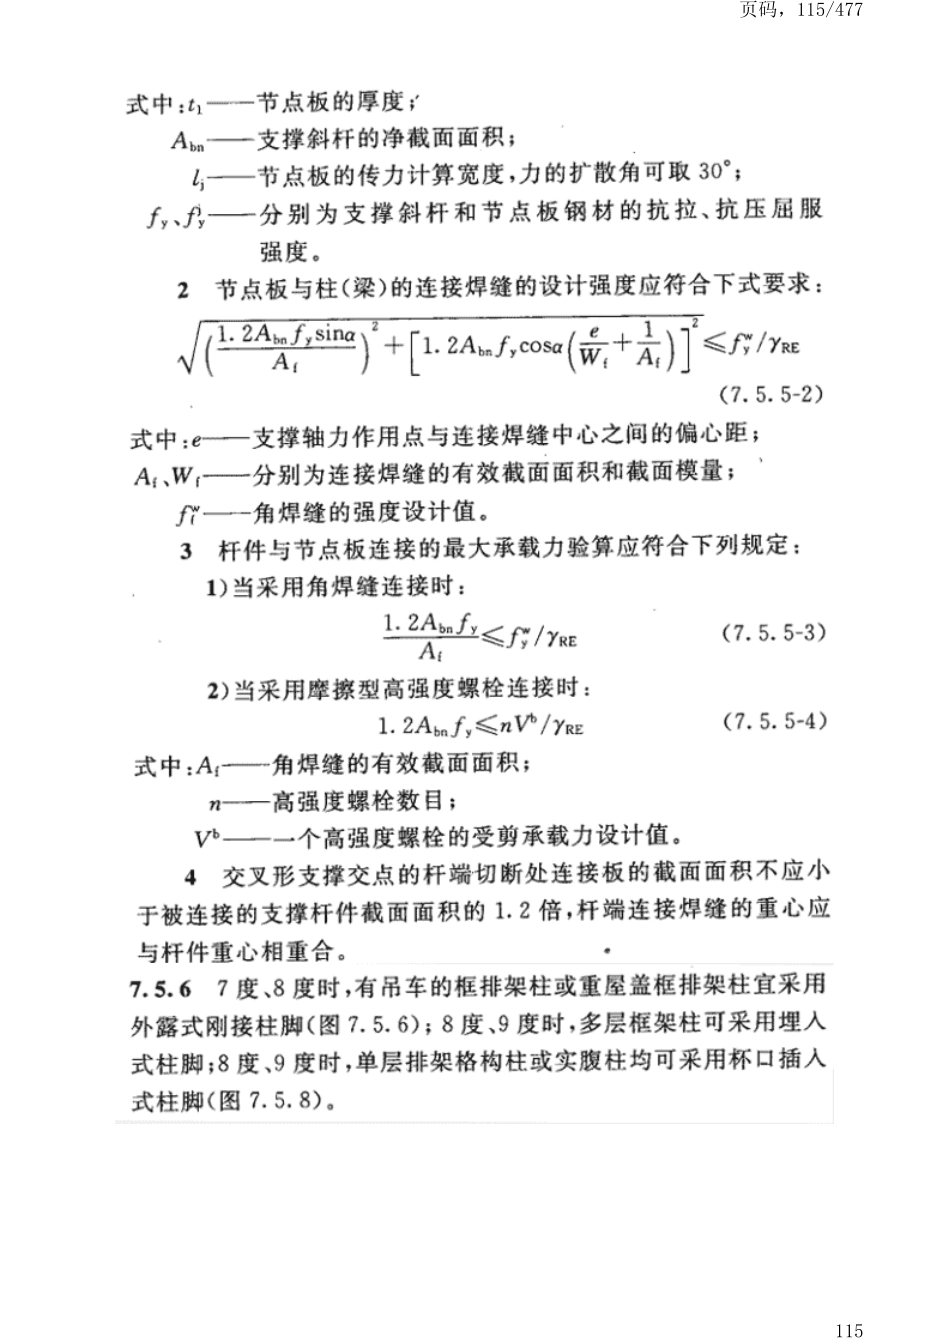 页码，115/477
式中：t₁——节点板的厚度；
A_bn——支撑斜杆的净截面面积；
l_j——节点板的传力计算宽度，力的扩散角可取 30°；
f_y、f_y^j——分别为支撑斜杆和节点板钢材的抗拉、抗压屈服
强度。
2 节点板与柱（梁）的连接焊缝的设计强度应符合下式要求：
√((1.2A_bn f_y sinα / A_f)² + [1.2A_bn f_y cosα (e/W_f + 1/A_f)]²) ≤ f_y^w/γ_RE
(7.5.5-2)
式中：e——支撑轴力作用点与连接焊缝中心之间的偏心距；
A_f、W_f——分别为连接焊缝的有效截面面积和截面模量；
f_f^w——角焊缝的强度设计值。
3 杆件与节点板连接的最大承载力验算应符合下列规定：
1)当采用角焊缝连接时：
1.2A_bn f_y / A_f ≤ f_y^w/γ_RE (7.5.5-3)
2)当采用摩擦型高强度螺栓连接时：
1.2A_bn f_y ≤ nV^b/γ_RE (7.5.5-4)
式中：A_f——角焊缝的有效截面面积；
n——高强度螺栓数目；
V^b——一个高强度螺栓的受剪承载力设计值。
4 交叉形支撑交点的杆端切断处连接板的截面面积不应小
于被连接的支撑杆件截面面积的 1.2 倍，杆端连接焊缝的重心应
与杆件重心相重合。
7.5.6 7 度、8 度时，有吊车的框排架柱或重屋盖框排架柱宜采用
外露式刚接柱脚（图 7.5.6）；8 度、9 度时，多层框架柱可采用埋入
式柱脚；8 度、9 度时，单层排架格构柱或实腹柱均可采用杯口插入
式柱脚（图 7.5.8）。
115